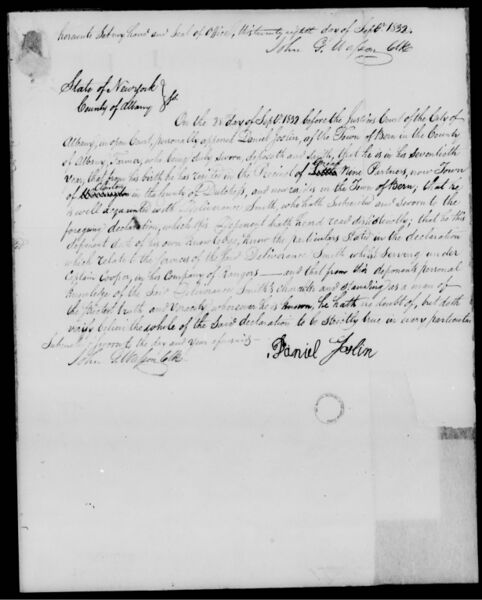 hereunto Set my hand and Seal of Office, this twenty eighth day of Sept 1832.
John G. Wasson Clk
State of New york
County of Albany } Ss
On the 28 day of Sept 1832 before the Justices Court of the City of
Albany, in open Court, personally appeared Daniel Joslin, of the Town of Bern in the County
of Albany, Farmer, who being duly sworn, deposeth and saith, that he is in his seventieth
year, that from his birth he has resided in the Precinct of Nine Partners, now Town
of Clinton in the County of Dutchess, and now resides in the Town of Bern, that he
is well acquainted with Deliverance Smith, who hath Subscribed and Sworn to the
foregoing declaration, which this deponent hath heard read distinctly; that he this
deponent doth of his own Knowledge, Know the particulars stated in the declaration
which relate to the services of the Said Deliverance Smith whilst serving under
Captain Cooper, in his Company of rangers — and that from this deponents personal
Knowledge of the Said Deliverance Smith's character and standing as a man of
the strictest truth and veracity wherever he is Known, he hath no doubt of, but doth
verily believe the whole of the Said declaration to be strictly true in every particular
Subscribed & sworn to the day and year aforesaid
John G Wasson Clk
Daniel Joslin